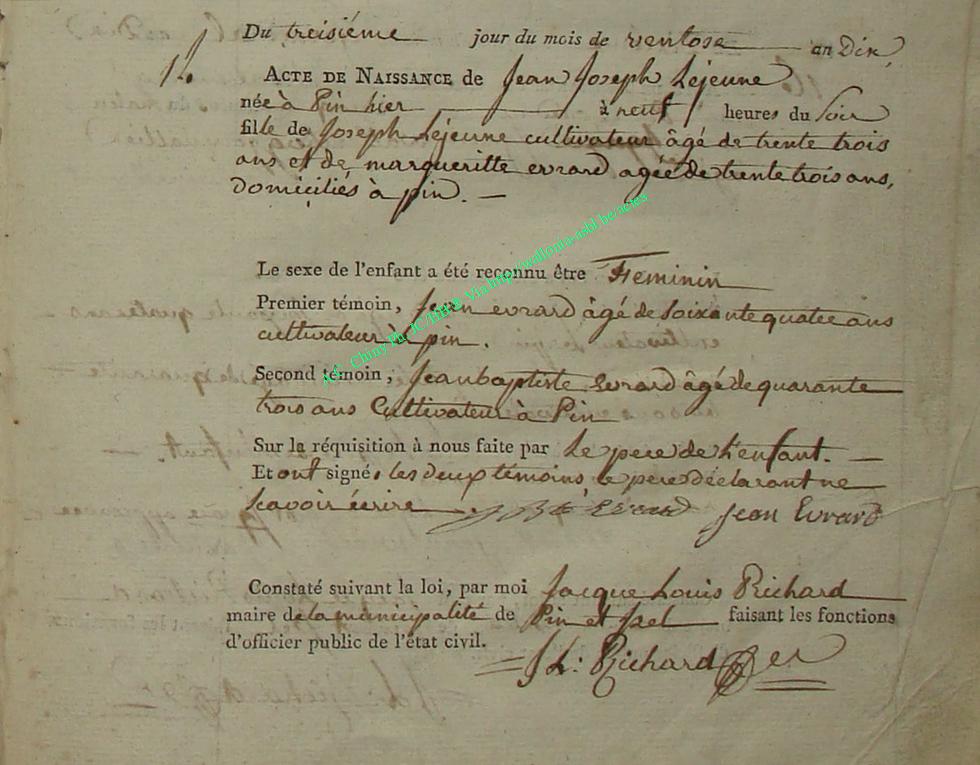 Du treisiéme jour du mois de ventose an Dix
12.
ACTE DE NAISSANCE de Jean Joseph Lejeune
née à Pin hier à neuf heures du Soir
fille de Joseph Lejeune cultivateur âgé de trente trois
ans et de margueritte evrard agée de trente trois ans,
domiciliés à pin. —
Le sexe de l'enfant a été reconnu être Feminin
Premier témoin, Jean evrard âgé de soixante quatre ans
cultivateur à pin.
Second témoin, Jean baptiste Evrard âgé de quarante
trois ans Cultivateur à Pin
Sur la réquisition à nous faite par le pere de l'enfant. —
Et ont signé les deux témoins le pere déclarant ne
savoir écrire. JBte Evrard Jean Evrard
Constaté suivant la loi, par moi Jacque Louis Richard
maire de la municipalité de Pin et Izel faisant les fonctions
d'officier public de l'état civil.
JL: Richard
A.E. Chiny Ph. JC/HH® Via http://wallonia-asbl.be/actes